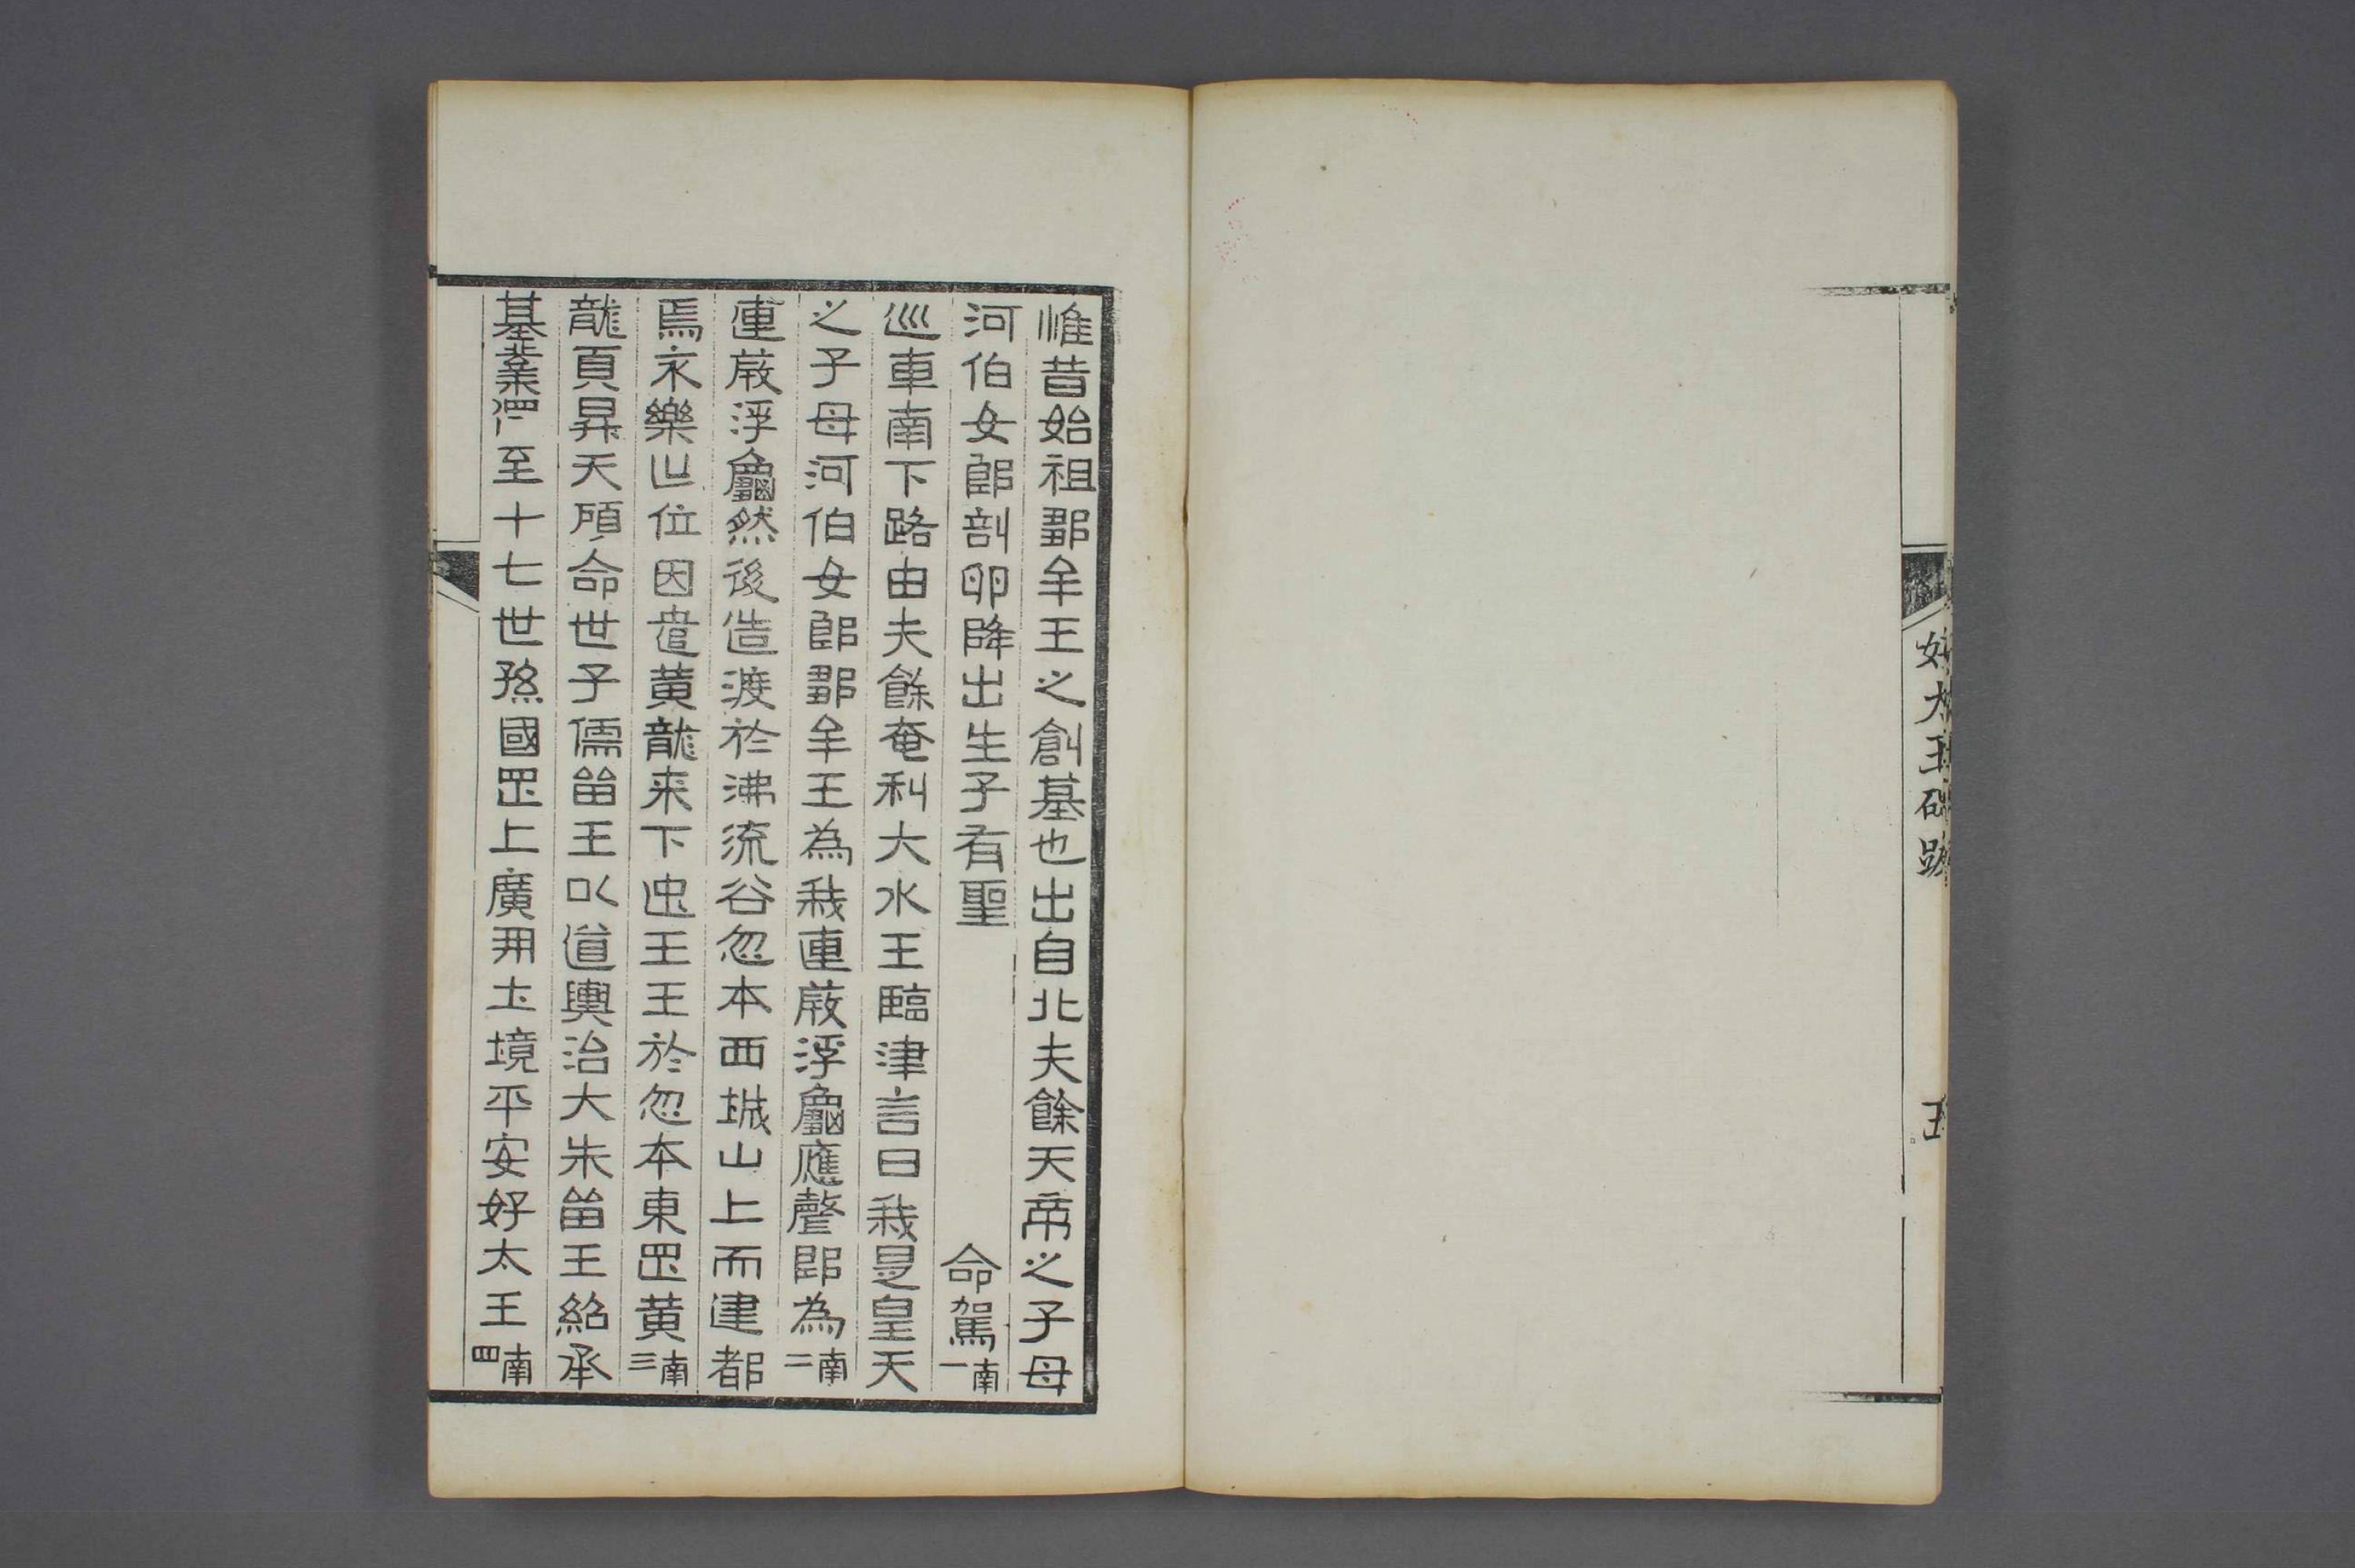 好大王碑跋
五
惟昔始祖鄒牟王之創基也出自北夫餘天帝之子母
河伯女郎剖卵降出生子有聖 命駕南一
巡車南下路由夫餘奄利大水王臨津言曰我是皇天
之子母河伯女郎鄒牟王為我連葭浮龜應聲即為南二
連葭浮龜然後造渡於沸流谷忽本西城山上而建都
焉永樂世位因遣黃龍来下迎王王於忽本東罡黃南三
龍頁昇天顧命世子儒留王以道輿治大朱留王紹承
基業至十七世孫國罡上廣開土境平安好太王南四